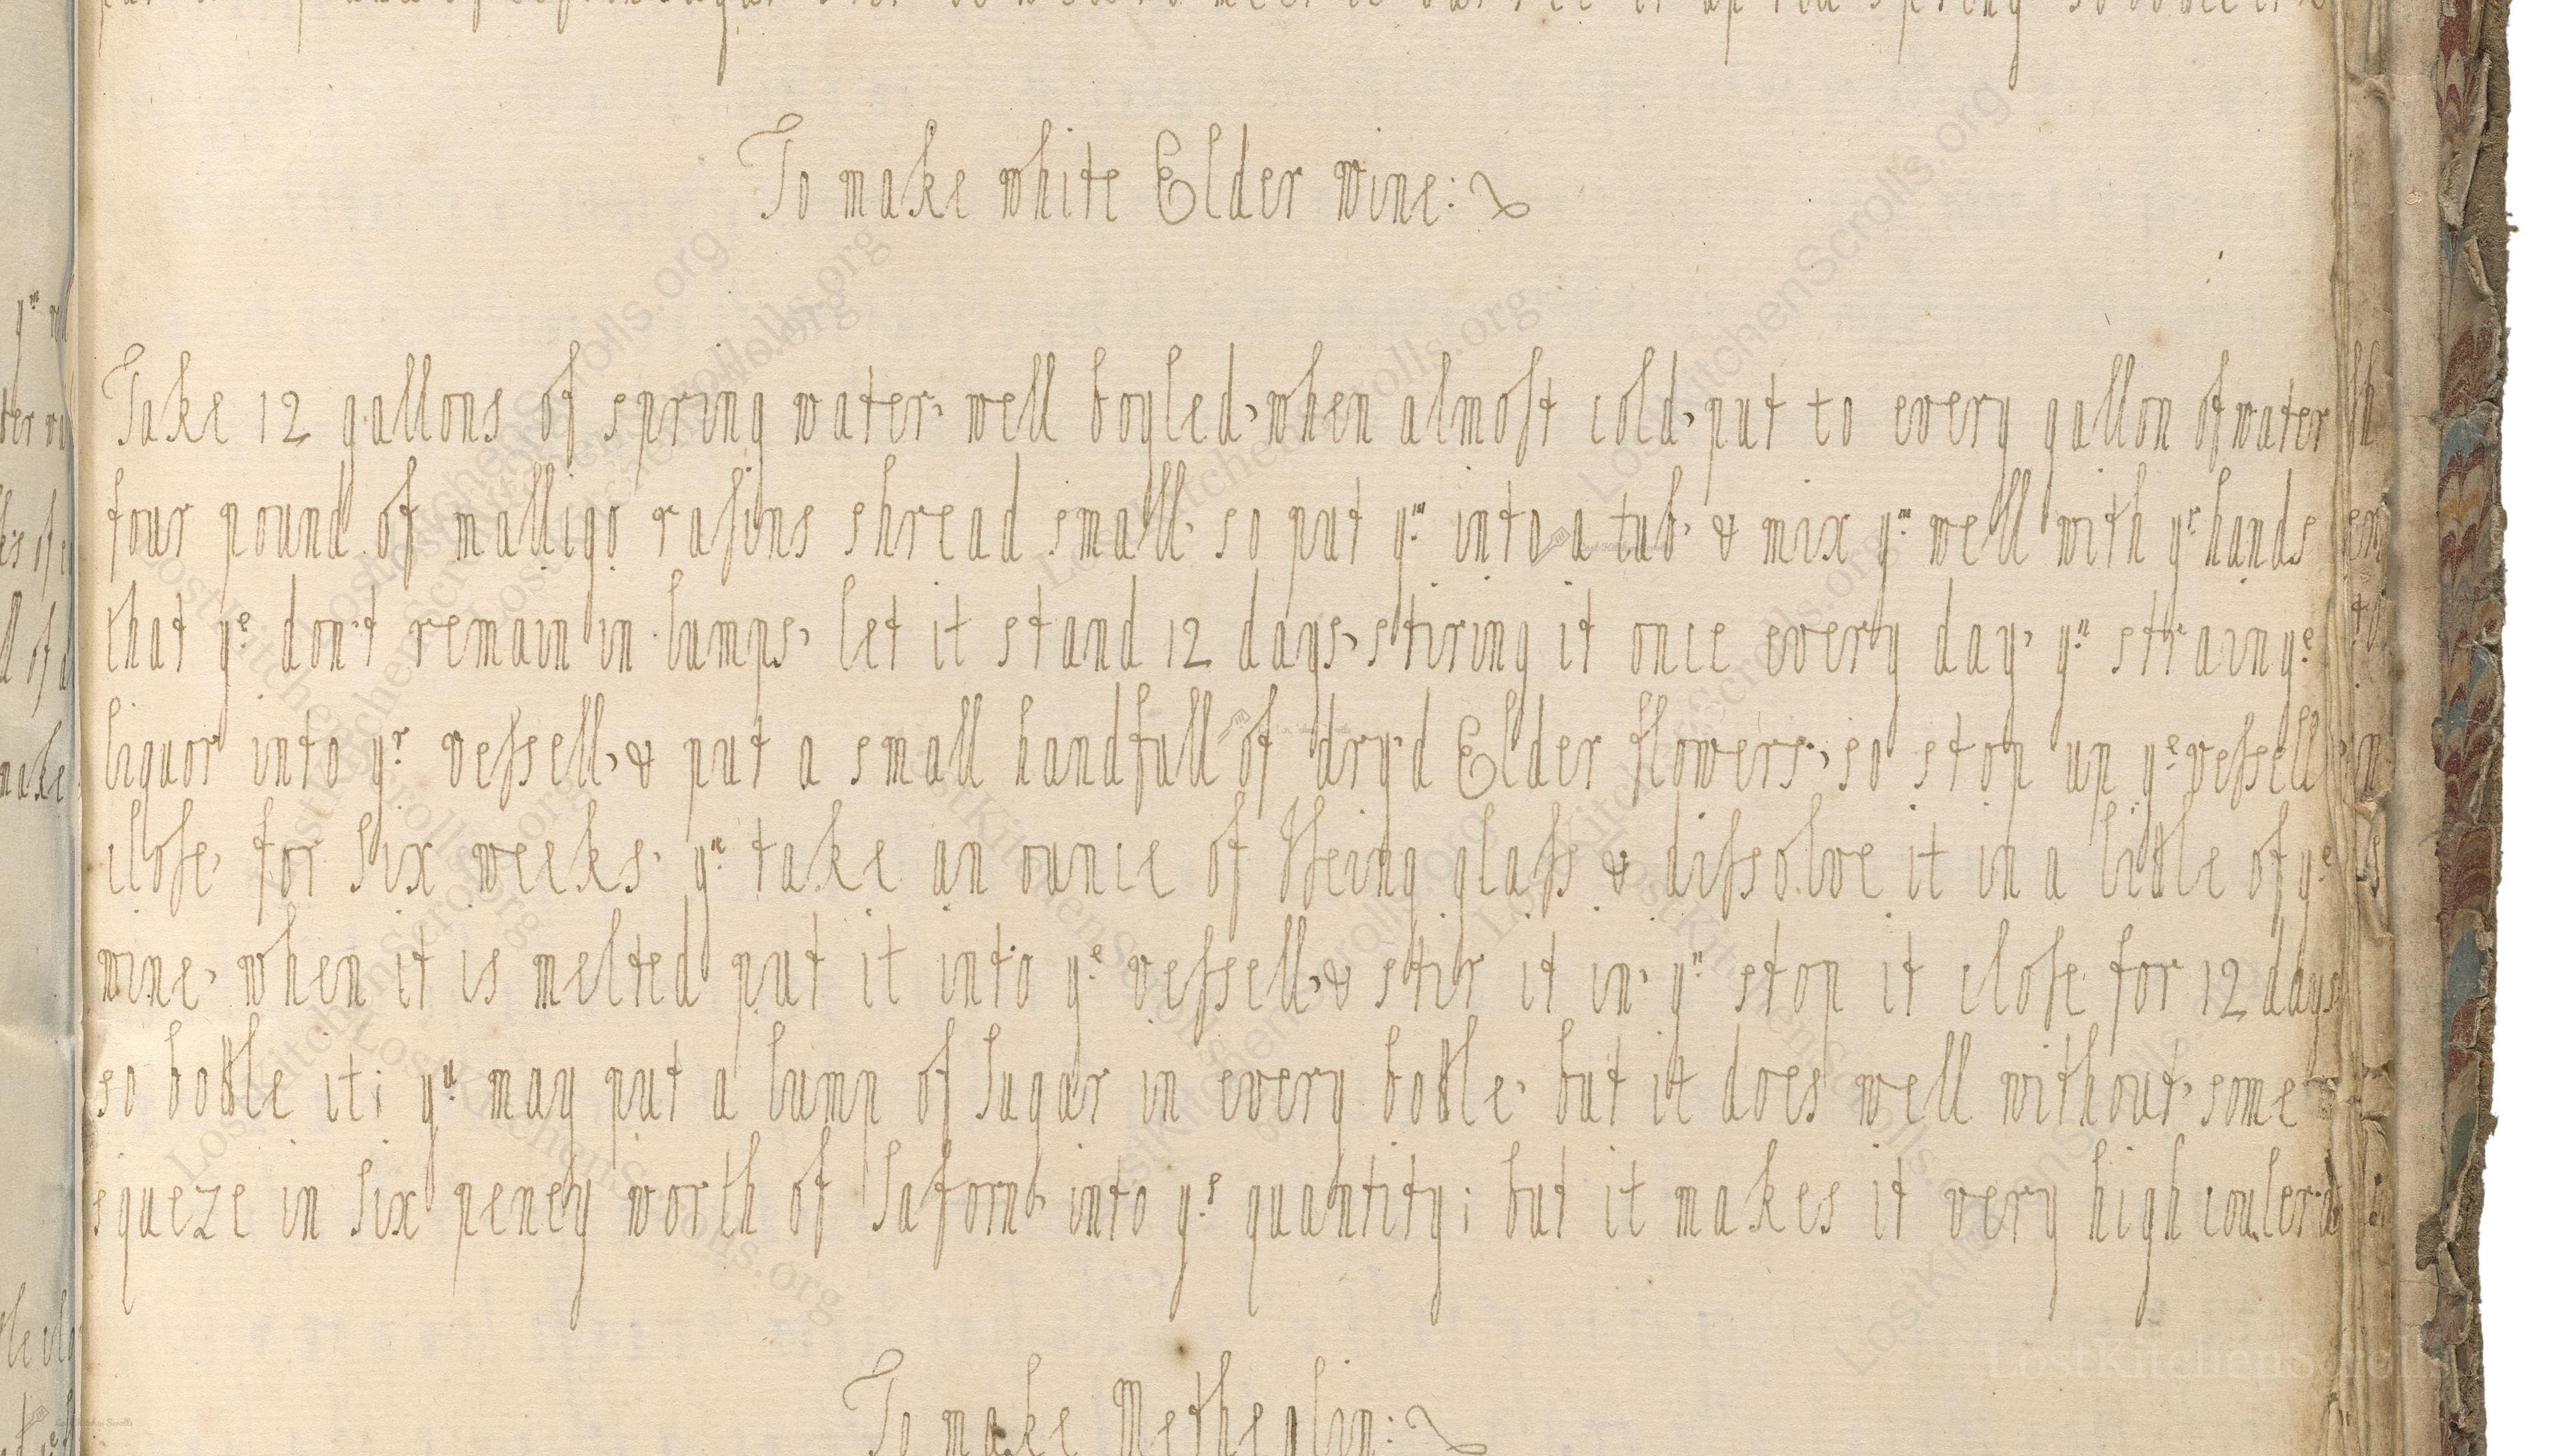 To make white Elder wine:
Take 12 gallons of spring water, well boyled, when almost cold, put to every gallon of water
four pound of malligo rasins shread small, so put yᵐ into a tub, & mix yᵐ well with yʳ hands
that yᵉ don't remain in lumps, let it stand 12 days, stiring it once every day, yⁿ strain yᵉ
liquor into yʳ vessell, & put a small handfull of dry'd Elder flowers, so stop up yᵉ vessell
close, for six weeks, yⁿ take an ounce of Iseing glass & dissolve it in a little of yᵉ
wine, when it is melted put it into yᵉ vessell, & stir it in, yⁿ stop it close for 12 days
so bottle it; yᵘ may put a lump of sugar in every bottle, but it does well without, some
squeze in six peney worth of Saforn, into yˢ quantity; but it makes it very high couler'd
To make Metheglin:
LostKitchenScrolls.org